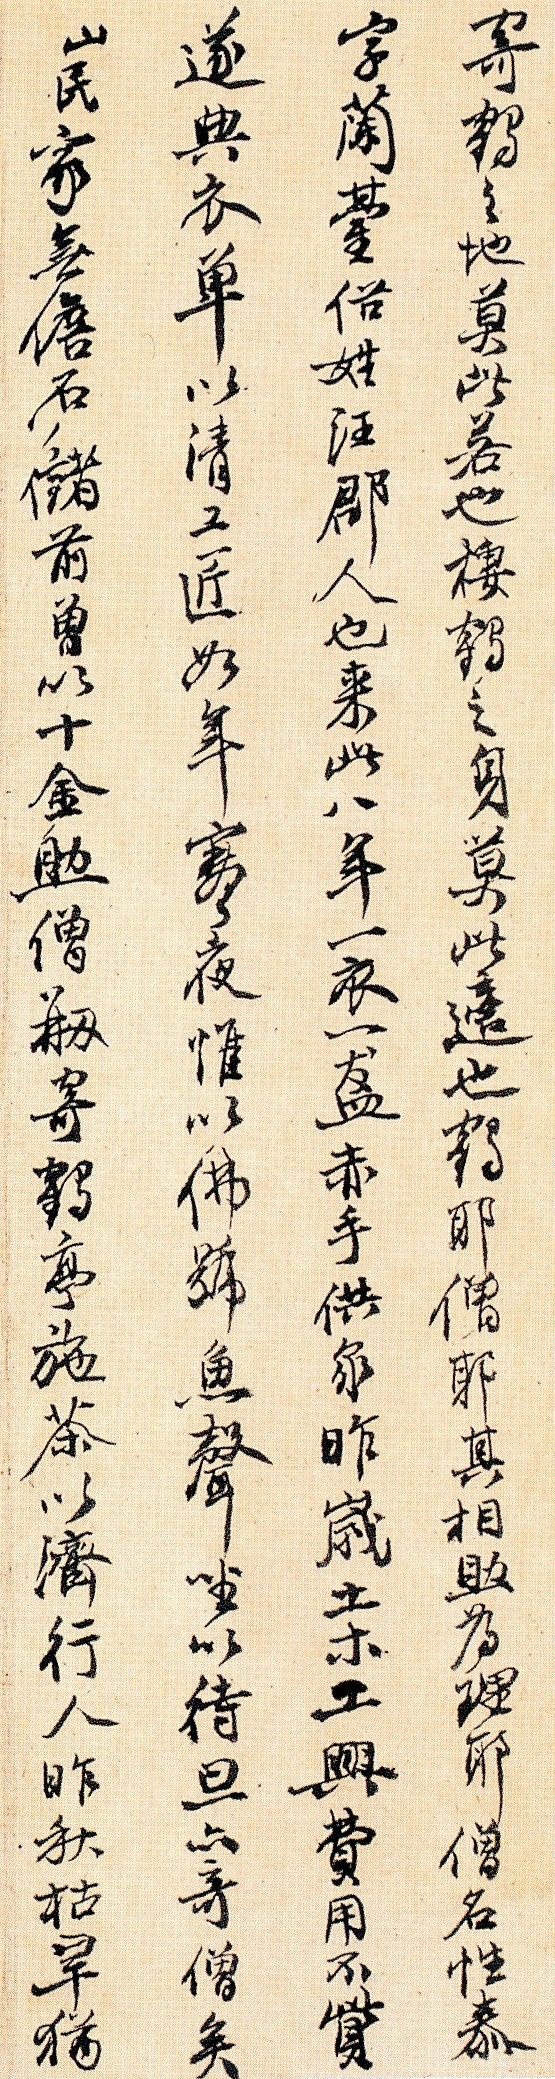 寄鶴之地莫此若也棲鶴之身莫此適也鶴耶僧耶其相助為理耶僧名性泰
字蘭臺俗姓汪郡人也来此八年一衣一盋赤手供众昨歲土木工興費用不貲
遂典衣单以清工匠如年寒夜惟以佛號魚聲坐以待旦亦奇僧矣
山民家無儋石儲前曾以十金助僧剏寄鶴亭施茶以濟行人昨秋枯旱猶